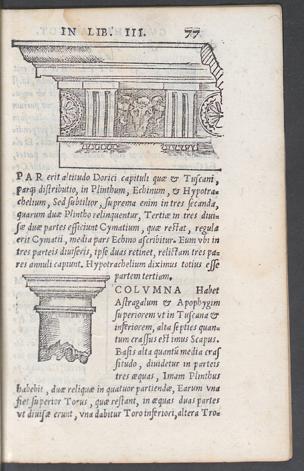 IN LIB. III. 77
PAR erit altitudo Dorici capituli quæ & Tuscani,
parq; distributio, in Plinthum, Echinum, & Hypotra-
chelium, Sed subtilior, suprema enim in tres secanda,
quarum duæ Plintho relinquentur, Tertiæ in tres diui-
sæ duæ partes efficiunt Cymatium, quæ restat, regulã
erit Cymatii, media pars Echino ascribitur. Eum vbi in
tres parteis diuiseris, ipse duas retinet, relictam tres pa-
res annuli capiunt. Hypotrachelium diximus totius esse
partem tertiam.
COLVMNA Habet
Astragalum & Apophygim
superiorem vt in Tuscana &
inferiorem, alta septies quan-
tum crassus est imus Scapus.
Basis alta quantũ media cras
situdo, diuidetur in parteis
tres æquas, Imam Plinthus
habebit, duæ reliquæ in quatuor partiendæ, Earum vna
fiet superior Torus, quæ restant, in æquas duas partes
vt diuisæ erunt, vna dabitur Toro inferiori, altera Tro-